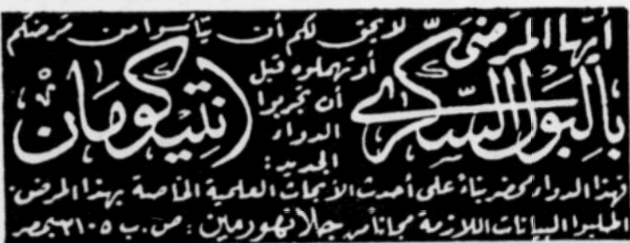 أيها المرضى
بالبول السكرى
لا يحق لكم أن تيأسوا من مرضكم
أو تهملوه قبل
أن تجربوا
الدواء
الجديد :
انتيكومان
فهذا الدواء محضر بناءً على أحدث الأبحاث العلمية الخاصة بهذا المرض .
اطلبوا البيانات اللازمة مجاناً من جلانهورمين : ص . ب ٢١٠٥ بمصر